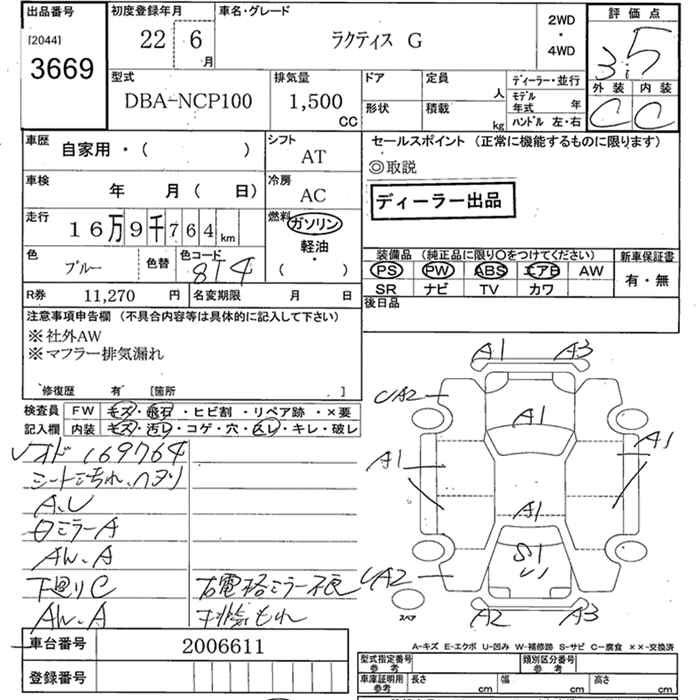 出品番号 初度登録年月 車名・グレード 2WD 評価点
[2044] 22 6 月 ラクティス G ・ 3.5
3669 4WD
型式 排気量 ドア 定員 人 ディーラー・並行 外装 内装
DBA-NCP100 1,500 CC 形状 積載 kg モデル年式 年 C C
ハンドル 左・右
車歴 自家用・( ) シフト AT セールスポイント (正常に機能するものに限ります)
◎取説
車検 年 月( 日) 冷房 AC ディーラー出品
走行 16万9千764km 燃料 ガソリン
軽油・
( )
色 ブルー 色替 色コード 8T4 装備品 (純正品に限り○をつけてください) 新車保証書
PS PW ABS エアB AW 有・無
R券 11,270 円 名変期限 月 日 SR ナビ TV カワ
注意事項申告欄 (不具合内容等は具体的に記入して下さい) 後日品
※社外AW
※マフラー排気漏れ
修復歴 有 [箇所 ]
検査員 FW キズ・飛石・ヒビ割・リペア跡・×要
記入欄 内装 キズ・汚レ・コゲ・穴・スレ・キレ・破レ
A1 A3
UA2
A1
A1 A1
A1
S1
U1
UA2
A2 A3
スペア
レオド 169764
シート汚れ、ヘタリ
A.U
ロミラーA
AW.A
下廻りC 右電格ミラー不良
AW.A 排気もれ
車台番号 2006611
登録番号
A-キズ E-エクボ U-凹み W-補修跡 S-サビ C-腐食 ××-交換済
型式指定番号 参考 類別区分番号 参考
車庫証明用 参考 長さ cm 幅 cm 高さ cm